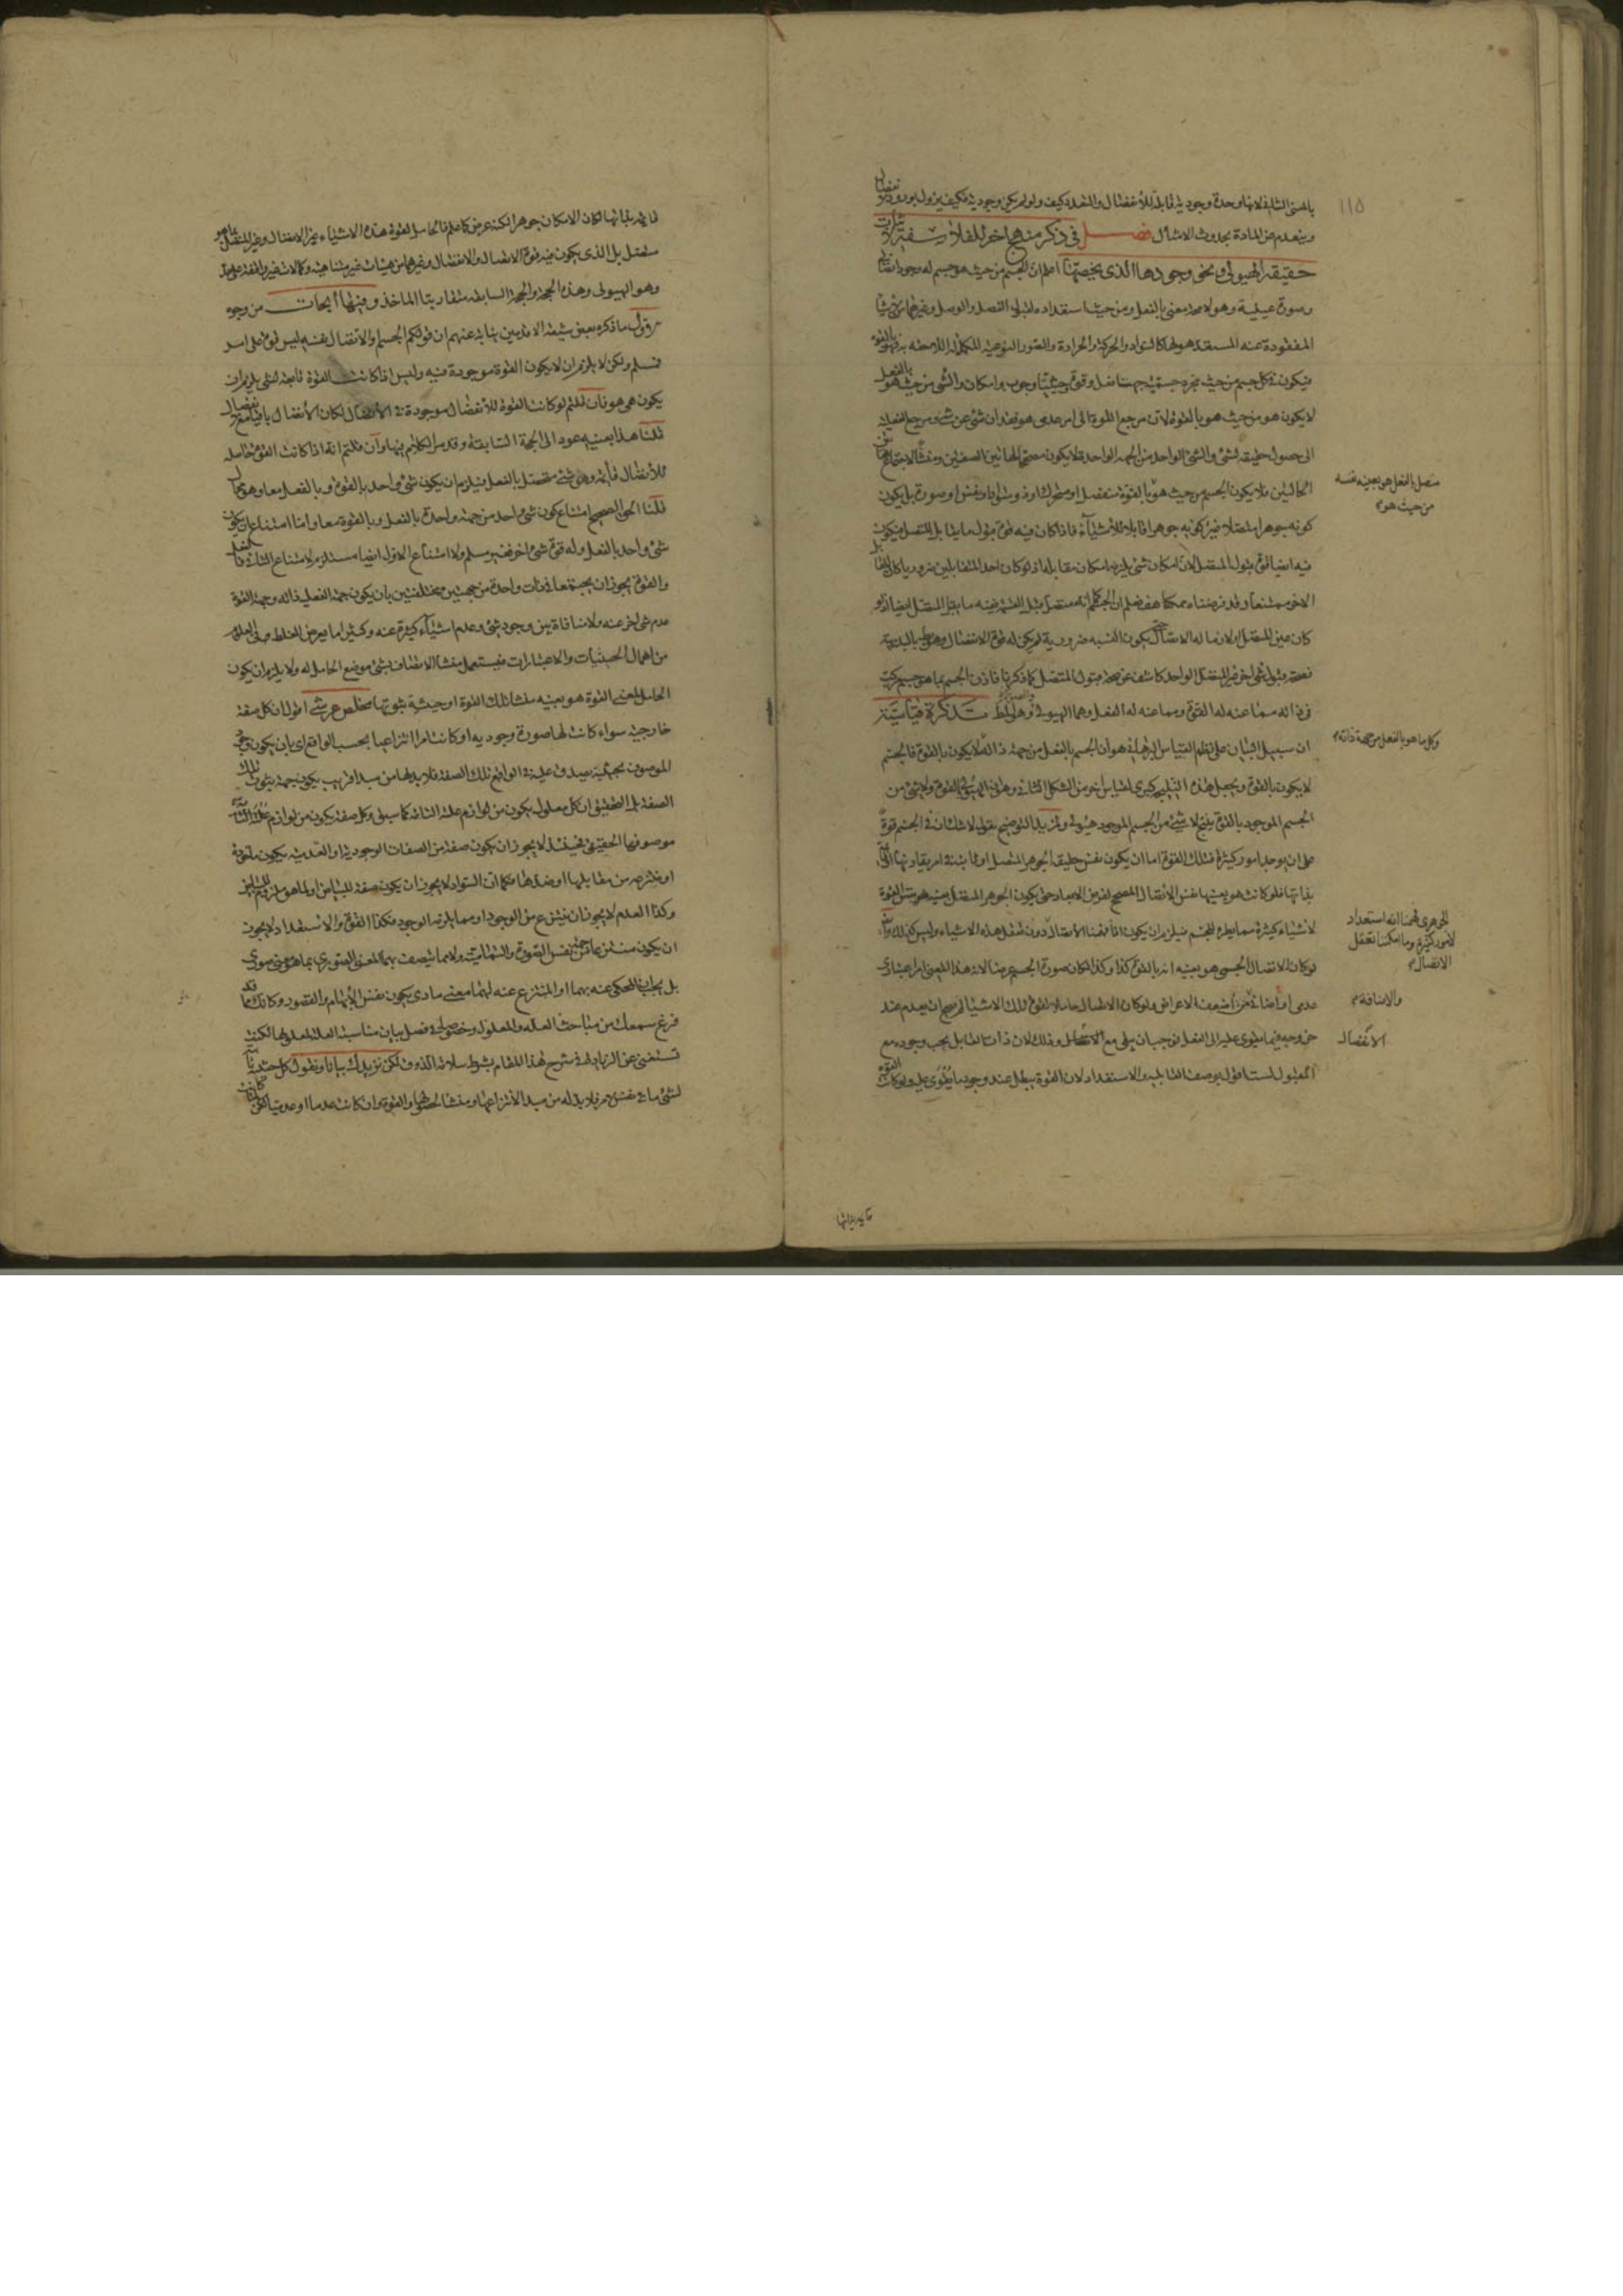 بالمعنى الثالث لانها وحدة وجودية قابلة للانفصال والتعدد كيف ولو لم يكن وجودية فكيف يزول بورود الانفصال
وينعدم عن المادة بحدوث الاتصال فصل فى ذكر منهج اخر للفلاسفة لاثبات
حقيقة الهيولى ونحو وجودها الذى يخصها اعلم ان الجسم من حيث هو جسم له وجود اتصالى
وصورة عينية وهو لا محة معنى بالفعل ومن حيث استعداده لقبول الفصل والوصل وغيرهما من الاشياء
المفقودة عنه المستعد هو لها كالسواد والحركة والحرارة والصور النوعية المكملة له اللاحقة به فهو بالقوة
فيكون فى كل جسم من حيث مجرد جسميته جهتا فعل وقوة وحيثيتا وجوب وامكان والشئ من حيث هو بالفعل
لا يكون هو من حيث هو بالقوة لان مرجع القوة الى امر عدمى هو فقدان شئ عن شئ ومرجع الفعلية
الى حصول حقيقة لشئ والشئ الواحد من الجهة الواحدة لا يكون مصححا لهاتين الصفتين ومنشأ لاجتماع هاتين
الحالتين فلا يكون الجسم من حيث هو بالقوة منفصل او متحرك او ذو سواد او نفس او صورة بل يكون
متصل بالفعل هو بعينه نفسه
من حيث هو
كونه جوهرا متصلا غير كونه جوهرا قابلا للاشياء فاذا كان فيه قوة قبول ما يقابل المتصل فيكون
فيه ايضا قوة قبول المتصل لان امكان شئ يلزمه امكان مقابله اذ لو كان احد المتقابلين ضروريا كان المقابل
الاخر ممتنعا وقد فرضناه ممكنا هف فعلم ان الجسم كما انه متصل
كان عين المتصل او لازما له الاتصال حتى يكون النسبة ضرورية لم يكن له قوة الانفصال وهو بط بالبديهة
فصحة قبول شئ اخر غير المتصل الواحد كاشف عن صحة قبول المتصل كما ذكرنا فاذن الجسم بما هو جسم مركب
فى ذاته مما عنه له القوة ومما عنه له الفعل وهما الهيولى والصورة وهو المط تذكرة قياسية
ان سبيل البيان على نظم القياس البرهانى هو ان الجسم بالفعل من جهة ذاته لا يكون بالقوة فالجسم
وكل ما هو بالفعل من جهة ذاته
لا يكون بالقوة ويجعل هذه النتيجة كبرى لقياس اخر من الشكل الثانى وهو ان الهيولى بالقوة ولا شئ من
الجسم الموجود بالقوة ينتج لا شئ من الجسم الموجود هيولى ولمزيد التوضيح نقول لا شك ان فى الجسم قوة
على ان يوجد امور كثيرة فتلك القوة اما ان يكون نفس حقيقة الجوهر المتصل او ثابتة فى امر يقارنها او قائمة
بذاتها فلو كانت هو بعينها نفس الاتصال المصحح لفرض الابعاد حتى يكون الجوهر المتصل بعينه هو نفس القوة
لاشياء كثيرة مما يطرء للجسم فيلزم ان يكون اذا فهمنا الاتصال دون تعقل هذه الاشياء وليس كذلك وايضا
الجوهرى فهمنا انه استعداد
لامور كثيرة وما امكننا تعقل
الاتصال
لو كان الاتصال الجسمى هو بعينه انه بالقوة كذا وكذا لكان صورة الجسم عرضا لان هذا المعنى امر اعتبارى
عدمى او اضافة من اضعف الاعراض ولو كان الاتصال حاملا لقوة تلك الاشياء لم يصح ان يعدم عند
والاضافة
خروجه فيما يقوى عليه الى الفعل فوجب ان يبقى مع الانفصال وذلك لان ذات القابل يجب وجوده مع
الانفصال
المقبول لست اقول بوصف القابلية والاستعداد لان القوة يبطل عند وجود ما يقوى عليه ولو كانت القوة
قائمة بذاتها
قائمة بذاتها لكان الامكان جوهرا لكنه عرض كما علم فالحامل لقوة هذه الاشياء غير الاتصال وغير المتصل بما هو
متصل بل الذى يكون فيه قوة الاتصال والانفصال وغيرهما من هيئات غير متناهية وكمالات غير واقفة على حد
وهو الهيولى وهذه الحجة والحجة السابقة متقاربتا الماخذ وفيها ابحاث من وجوه
الاول ما ذكره بعض شيعة الاقدمين نيابة عنهم ان قولكم الجسم والاتصال نفسه ليس قوة على امر
فمسلم ولكن لا يلزم ان لا يكون القوة موجودة فيه وليس اذا كانت القوة تابعة لشئ يلزم ان
يكون هى هو فان قلتم لو كانت القوة للانفصال موجودة فى الاتصال لكان الاتصال باقيا مع الانفصال
قلنا هذا بعينه عود الى الحجة السابقة وقد مر الكلام فيها وان قلتم انه اذا كانت القوة حاصلة
للاتصال قائمة وهو شئ متحصل بالفعل فيلزم ان يكون شئ واحد بالقوة وبالفعل معا وهو محال
قلنا الحق الصحيح امتناع كون شئ واحد من جهة واحدة بالفعل وبالقوة معا واما امتناع ان يكون
شئ واحد بالفعل وله قوة شئ اخر فغير مسلم ولا امتناع الاول ايضا مستلزم لامتناع الثانى فالفعل
والقوة يجوز ان يجتمعا فى ذات واحدة من جهتين مختلفتين بان يكون جهة الفعلية ذاته وجهة القوة
عدم شئ اخر عنه ولا منافاة بين وجود شئ وعدم اشياء كثيرة عنه وكثيرا ما يعرض الغلط فى العلوم
من اهمال الحيثيات والاعتبارات فيستعمل منشا الاتصاف بشئ موضع الحامل له ولا يلزم ان يكون
الحامل لمعنى القوة هو بعينه منشا تلك القوة او حيثية ثبوتها مخلص عرشى اقول ان كل صفة
خارجية سواء كانت لها صورة وجودية او كانت امرا انتزاعيا بحسب الواقع اى بان يكون وجود
الموصوف بحيثية يصدق عليه فى الواقع تلك الصفة فلا بد لها من مبدا قريب يكون جهة ثبوت تلك
الصفة بل التحقيق ان كل معلول يكون من لوازم علته التامة كما سبق وكل صفة يكون من لوازم
موصوفها الحقيقى فحينئذ لا يجوز ان يكون صفة من الصفات الوجودية او العدمية يكون ملحوقة
او منتزعة من مقابلها او ضدها فكما ان السواد لا يجوز ان يكون صفة للبياض او لما هو ملزوم للبياض
وكذا العدم لا يجوز ان ينتزع من الوجود او مما يلزمه الوجود فكذا القوة والاستعداد لا يجوز
ان يكون منتزعا من نفس الصورة والتمامية ولا مما يتصف بها لمعنى الصورى بما هو معنى صورى
بل يجب ان المحكى عنه بهما او المنتزع عنه لهما معنى مادى يكون نفس الابهام والقصور وكانك قد
قرع سمعك من مباحث العلة والمعلول وخصوصا فى فصل بيان مناسبة العلة لمعلولها لكنت
تستغنى عن الزيادة فى شرح هذا المقام بشرط سلامة الذوق لكن نزيدك بيانا ونقول كل حيثية
لشئ ما فى نفس الامر فلا بد له من مبدا لانتزاعها ومنشا لحصولها والقوة وان كانت عدما او عدميا لكن